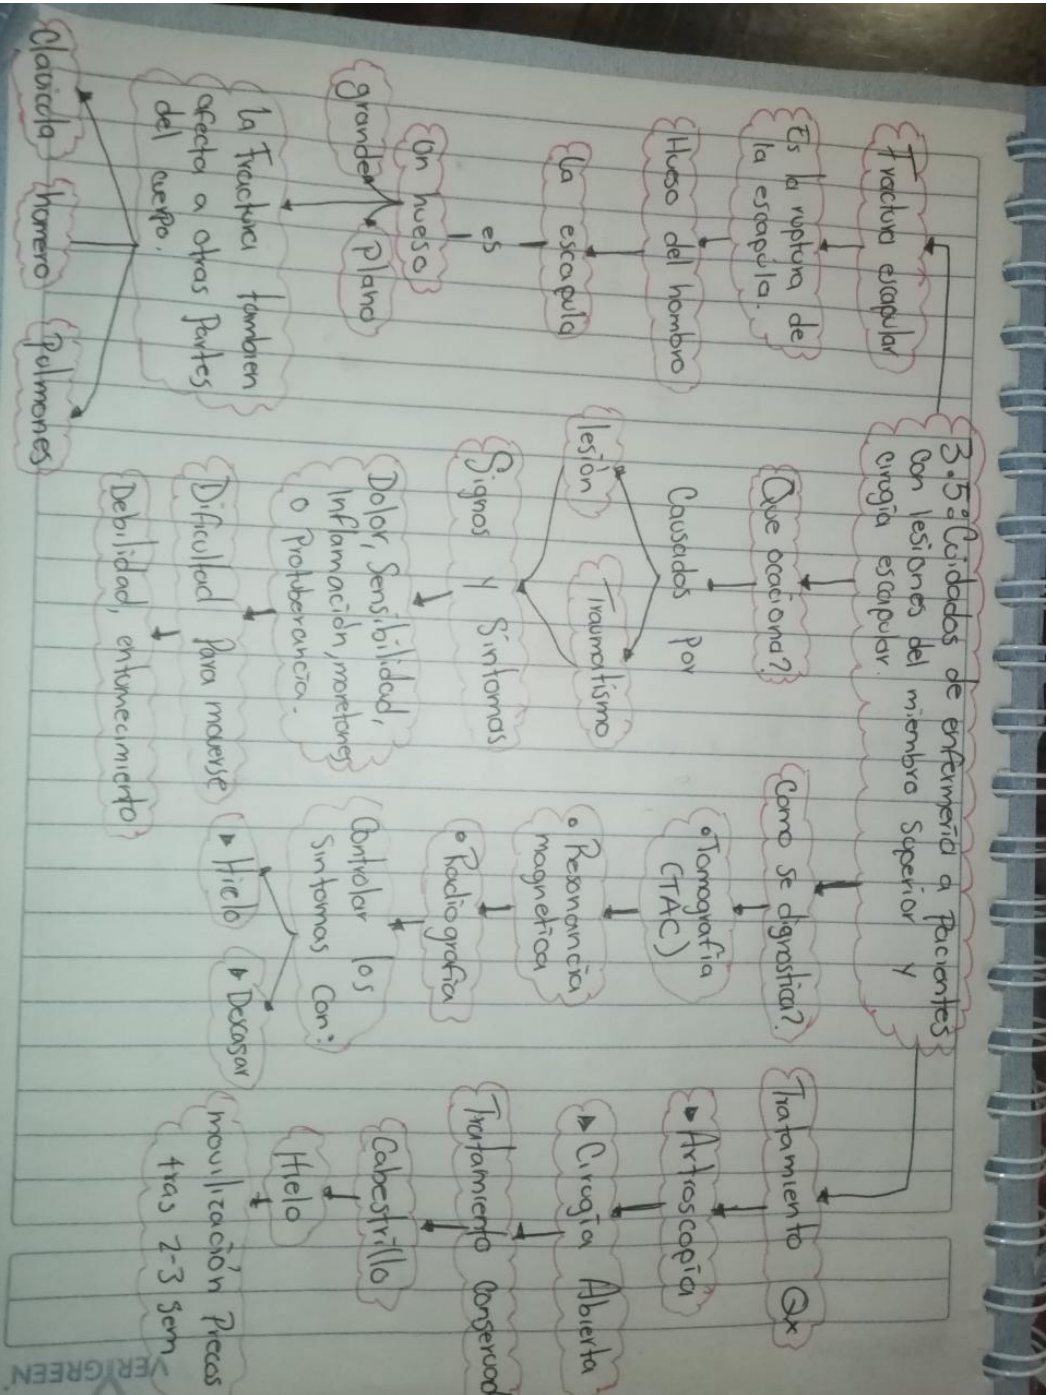 3.5: Cuidados de enfermería a Pacientes
con lesiones del miembro superior y
cirugía escapular.
Fractura escapular
Es la ruptura de
la escapúla.
Hueso del hombro
la escapula
es
Un hueso
grande
Plano
la Fractura tambien
afecta a otras Partes
del cuerpo.
Clavicola
homero
Pulmones
Que ocaciona?
Causados Por
lesión
Traumatismo
Signos y Síntomas
Dolor, Sensibilidad,
Inflamación, moretones
o Protuberancia.
Dificultad Para moverse
Debilidad, entumecimiento
Como se dignostica?
• Tomografía
(TAC)
• Resonancia
magnetica
• Radiografía
Controlar los
Sintomas Con:
▸ Hielo
▸ Dexasar
Tratamiento Qx
▸ Artroscopía
▸ Cirugía Abierta
Tratamiento Conservad
Cabestrillo
Hielo
movilización Precos
tras 2-3 sem
VERYGREEN